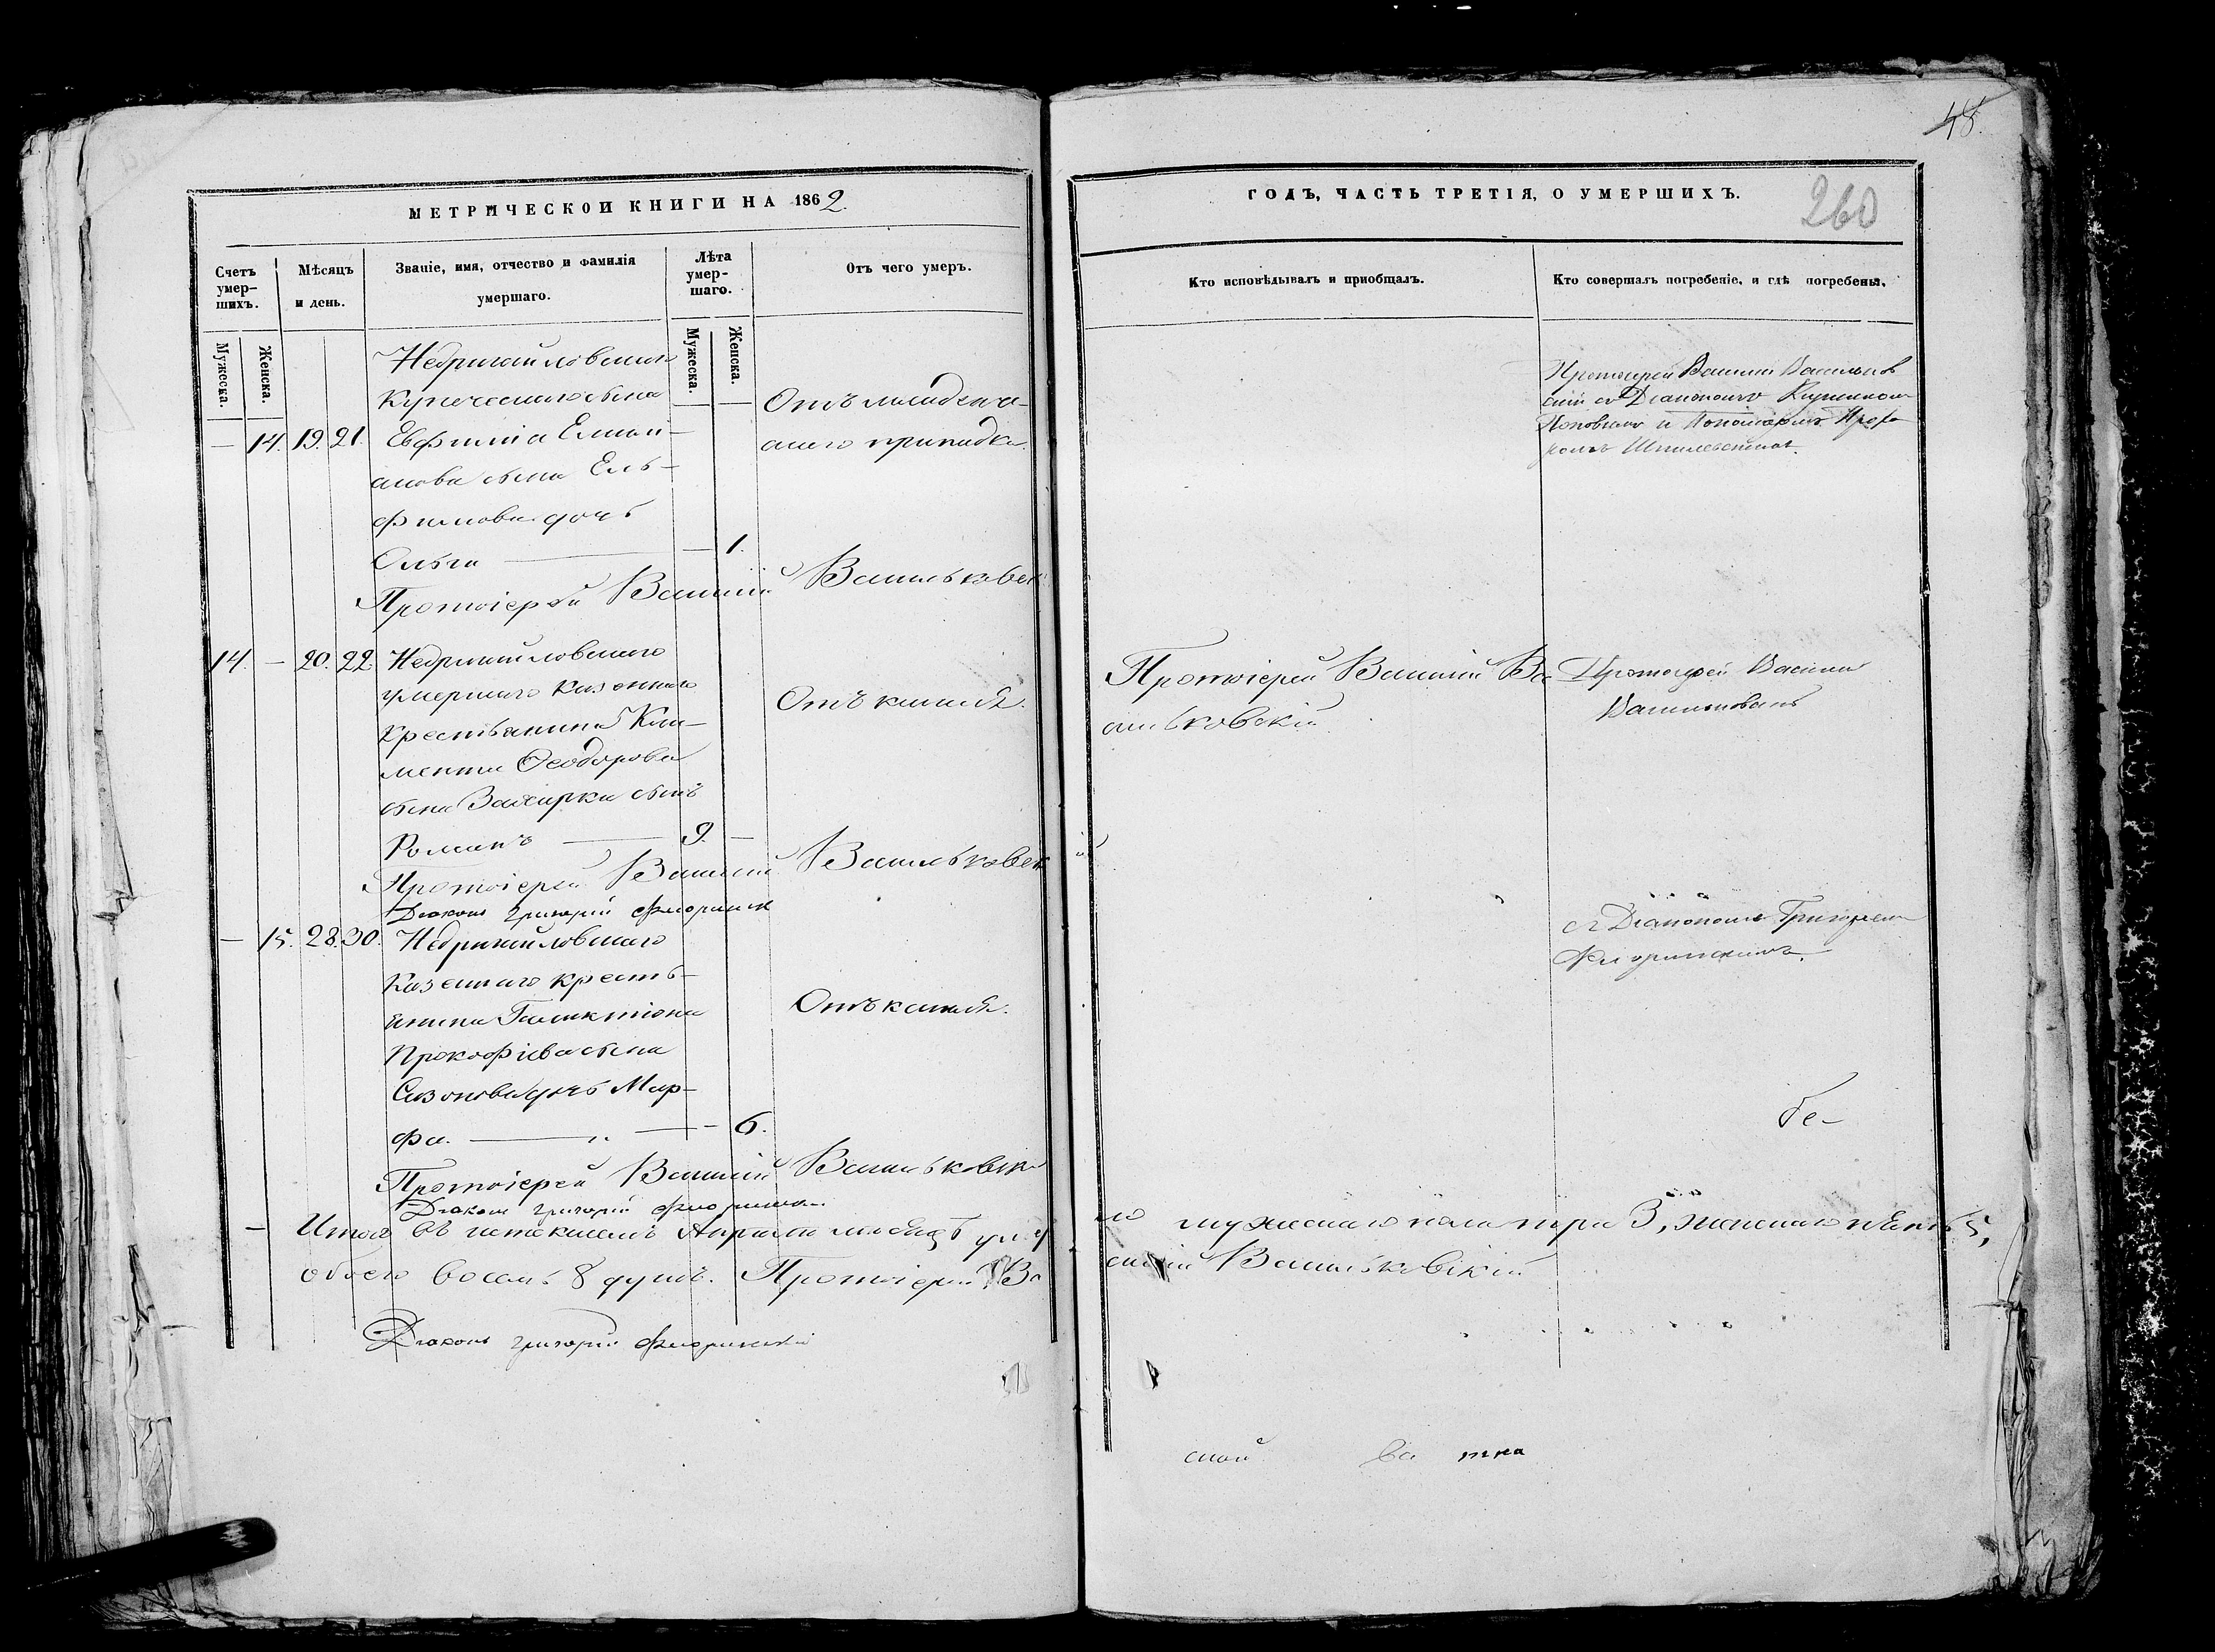 48.
МЕТРИЧЕСКОЙ КНИГИ НА 1862
ГОДЪ, ЧАСТЬ ТРЕТІЯ, О УМЕРШИХЪ.
260
Счетъ умер-шихъ.
Мѣсяцъ и день.
Званіе, имя, отчество и фамилія умершаго.
Лѣта умер-шаго.
Отъ чего умеръ.
Кто исповѣдывалъ и приобщалъ.
Кто совершалъ погребеніе, и гдѣ погребены.
Мужеска.
Женска.
Мужеска.
Женска.
Недригайловскаго
Купеческаго сына
— 14. 19. 21. Евфимія Емель-
анова сына Ель-
фимова дочь
Ольга — 1.
Отъ младенче-
скаго припадка.
Протоіерей Василій Васильков
скій съ Діакономъ
Поповымъ и Пономаремъ
Протоіерей Василій Васильковск
14. — 20. 22. Недригайловскаго
умершаго казеннаго
крестьянина Кли-
мента Ѳеодорова
сына Захарки сынъ
Романъ — 9. —
Отъ кашля.
Протоіерей Василій Ва
сильковскій
Протоіерей Василій
Васильковскій
Протоіерей Василій Васильковск
Діаконъ Григорій Флоринск
— 15. 28. 30. Недригайловскаго
Казеннаго кресть-
янина Галактіона
Прокофіева сына
Сазонова дочь Мар-
фа. — 6.
Отъ кашля.
съ Діакономъ Григоріемъ
Флоринскимъ.
бе-
Протоіерей Василій Васильковск
Діаконъ Григорій Флоринск
— Итого въ истекшемъ Апрѣлѣ мѣсяцѣ умер
ло мужескаго пола три 3, женскаго пять 5,
обоего восемь 8 душъ. Протоіерей Ва
силій Васильковскій
Діаконъ Григорій Флоринскій
ской ва тка